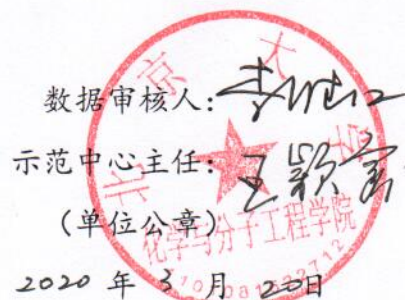 数据审核人：
示范中心主任：王颖
（单位公章）
北京大学
化学与分子工程学院
2020 年 3 月 20日